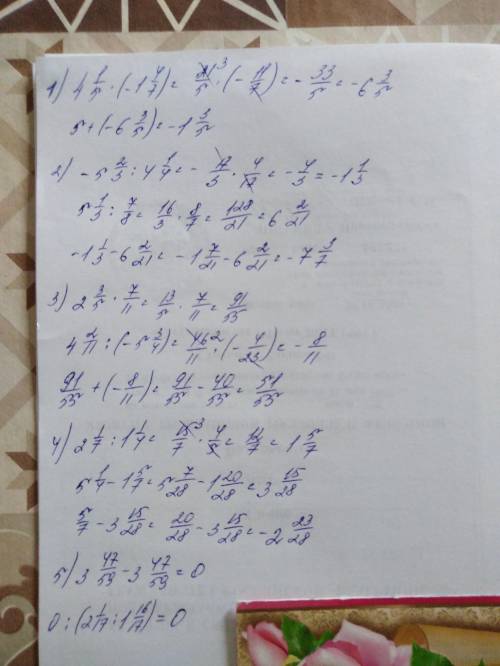 1) 4 1/5 · (-1 4/7) = 21/5 ³ · (-11/7) = -33/5 = -6 3/5
5 + (-6 3/5) = -1 3/5
2) -5 2/3 : 4 1/4 = -17/3 · 4/17 = -4/3 = -1 1/3
5 1/3 : 7/8 = 16/3 · 8/7 = 128/21 = 6 2/21
-1 1/3 - 6 2/21 = -1 7/21 - 6 2/21 = -7 3/7
3) 2 3/5 · 7/11 = 13/5 · 7/11 = 91/55
4 2/11 : (-5 3/4) = 46/11 ² · (-4/23) = -8/11
91/55 + (-8/11) = 91/55 - 40/55 = 51/55
4) 2 1/7 : 1 1/4 = 15/7 ³ · 4/5 = 12/7 = 1 5/7
5 1/4 - 1 5/7 = 5 7/28 - 1 20/28 = 3 15/28
5/7 - 3 15/28 = 20/28 - 3 15/28 = -2 23/28
5) 3 47/59 - 3 47/59 = 0
0 : (2 1/17 : 1 16/17) = 0